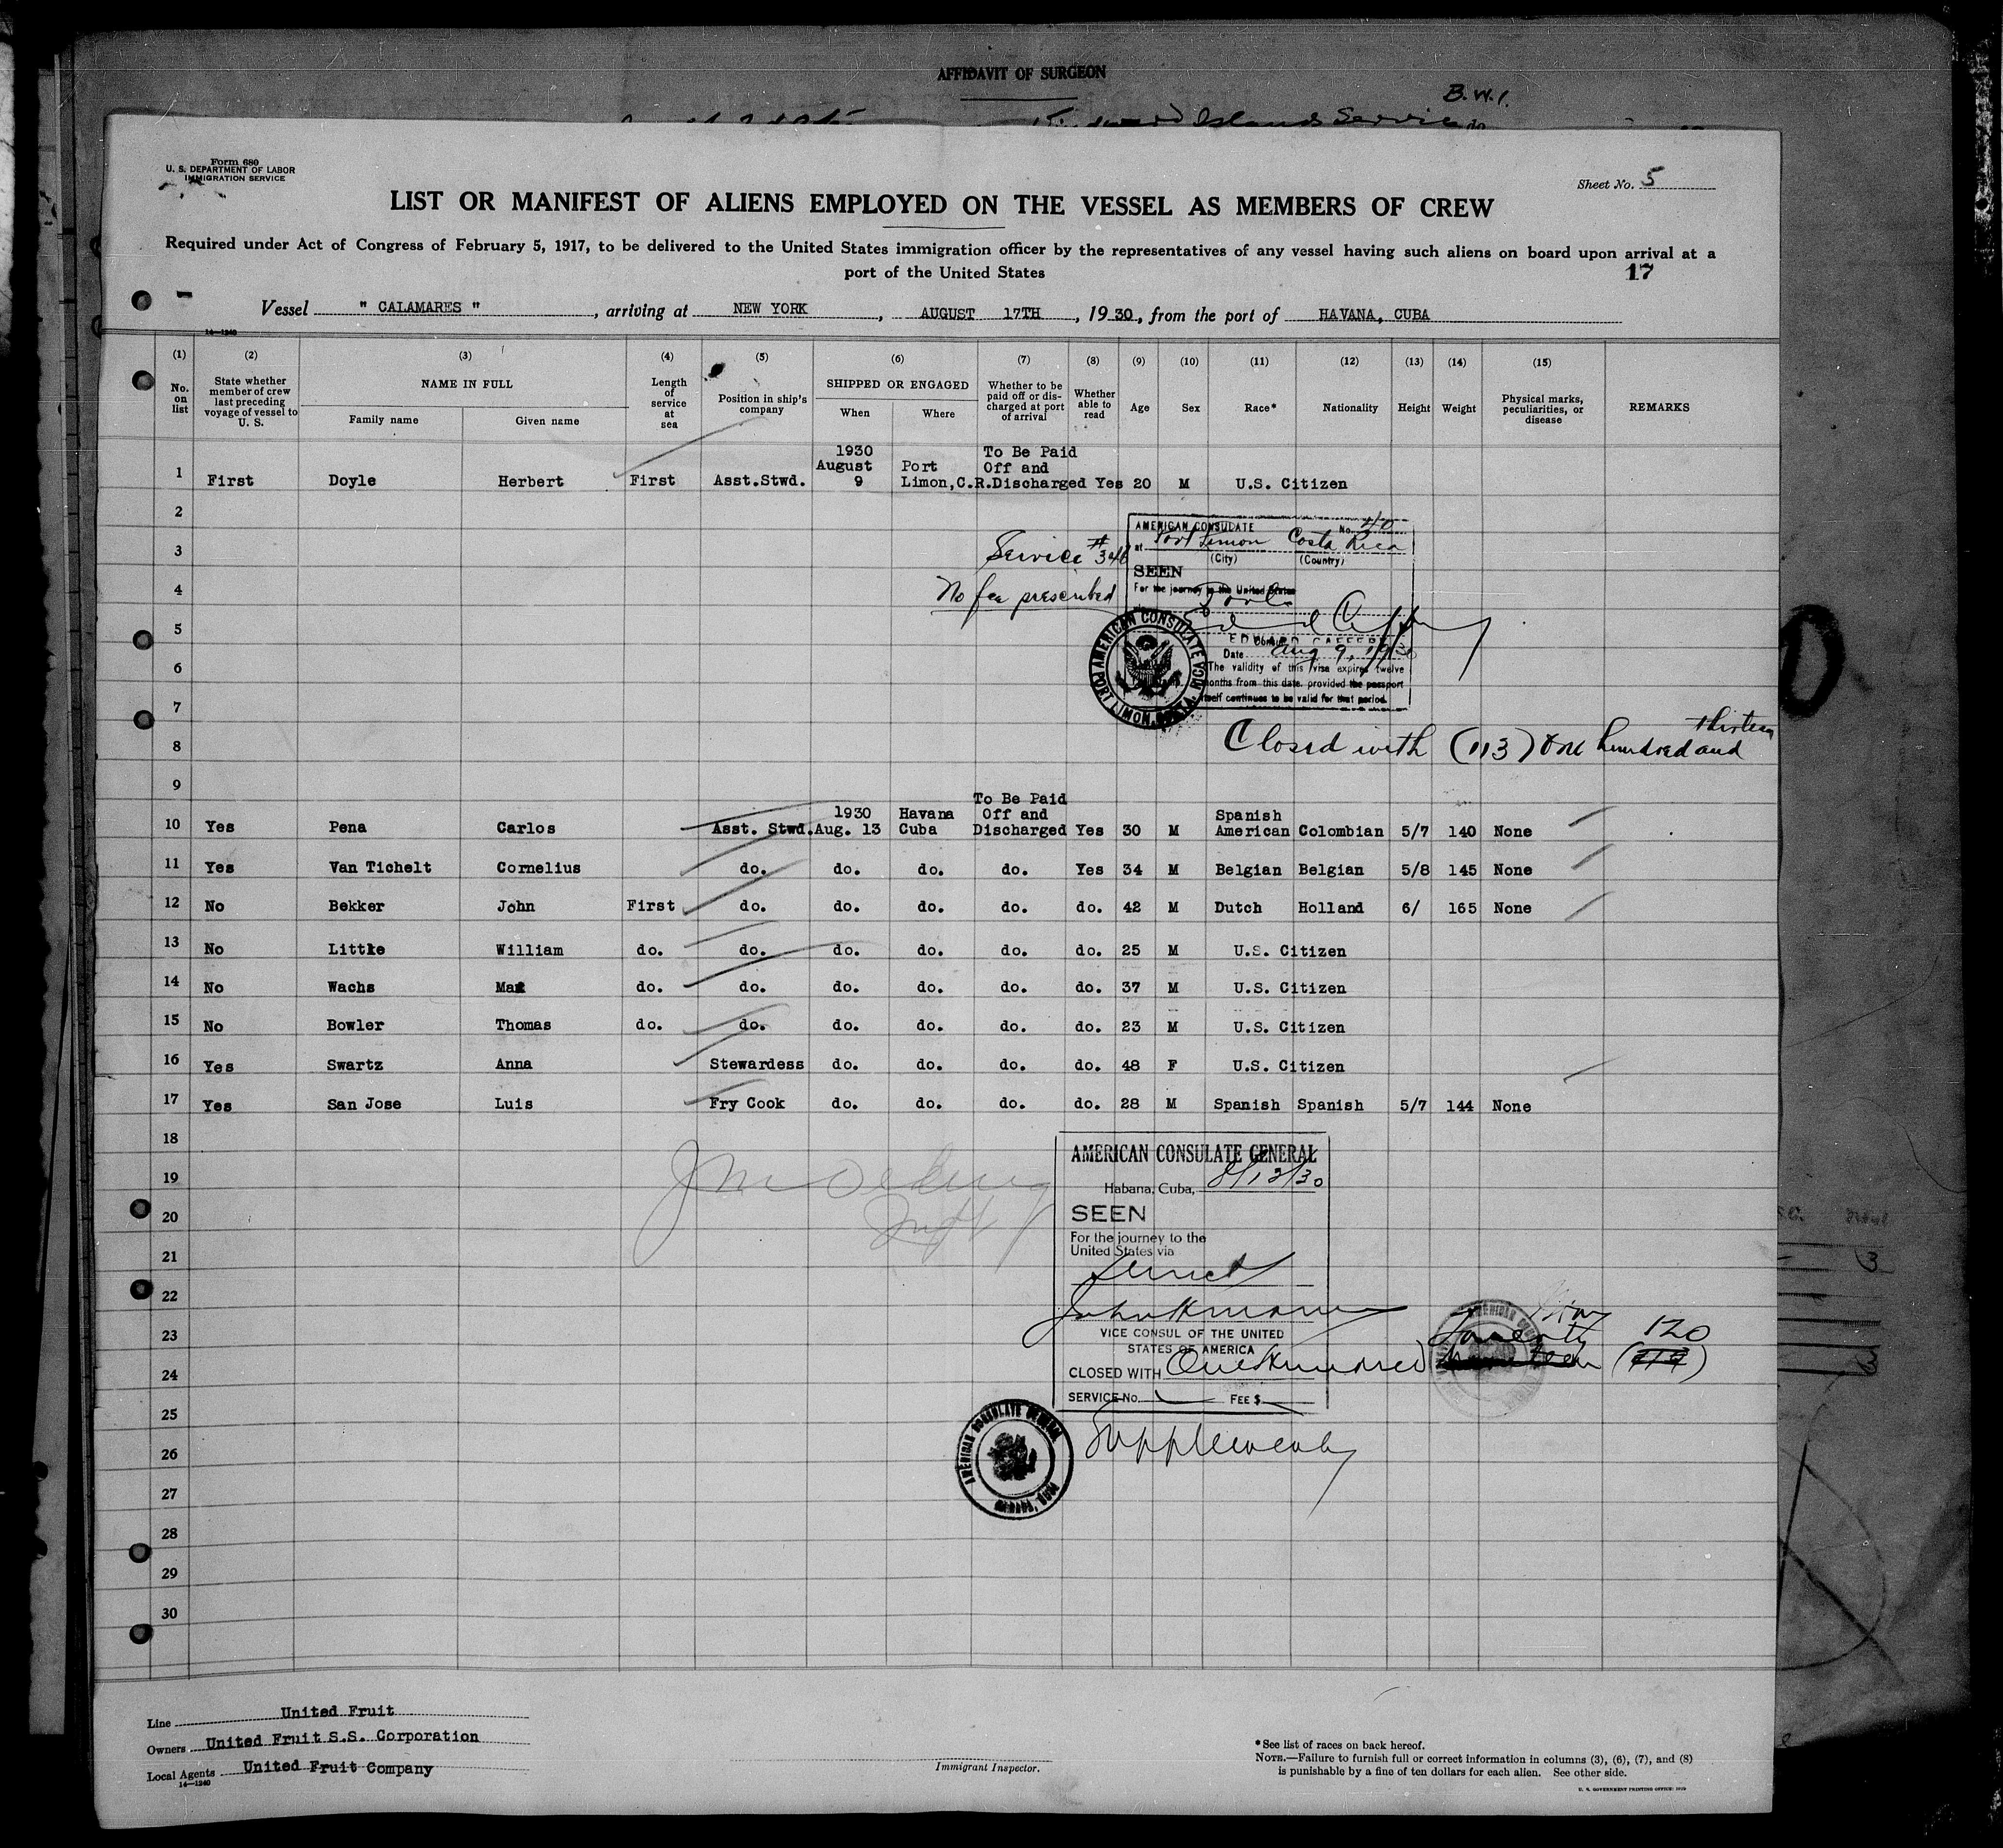 AFFIDAVIT OF SURGEON
B.W.I.
Islands Service
Form 680
U. S. DEPARTMENT OF LABOR
IMMIGRATION SERVICE
Sheet No. 5
LIST OR MANIFEST OF ALIENS EMPLOYED ON THE VESSEL AS MEMBERS OF CREW
Required under Act of Congress of February 5, 1917, to be delivered to the United States immigration officer by the representatives of any vessel having such aliens on board upon arrival at a
port of the United States
17
Vessel " CALAMARES ", arriving at NEW YORK, AUGUST 17TH, 1930, from the port of HAVANA, CUBA
14—1240
(1) No. on list
(2) State whether member of crew last preceding voyage of vessel to U. S.
(3) NAME IN FULL
Family name
Given name
(4) Length of service at sea
(5) Position in ship's company
(6) SHIPPED OR ENGAGED
When
Where
(7) Whether to be paid off or discharged at port of arrival
(8) Whether able to read
(9) Age
(10) Sex
(11) Race*
(12) Nationality
(13) Height
(14) Weight
(15) Physical marks, peculiarities, or disease
REMARKS
1 First Doyle Herbert First Asst.Stwd. 1930 August 9 Port Limon,C.R. To Be Paid Off and Discharged Yes 20 M U.S. Citizen
2
3
4
5
6
7
8
9
AMERICAN CONSULATE No. 40
at Port Limon Costa Rica
(City) (Country)
SEEN
For the journey to the United States
Service #
No fee prescribed
Consul
Date Aug 9, 1930
The validity of this visa expires twelve
months from this date, provided the passport
itself continues to be valid for that period.
AMERICAN CONSULATE PORT LIMON, COSTA RICA
Closed with (113) One hundred and thirteen
10 Yes Pena Carlos Asst. Stwd. 1930 Aug. 13 Havana Cuba To Be Paid Off and Discharged Yes 30 M Spanish American Colombian 5/7 140 None
11 Yes Van Tichelt Cornelius do. do. do. do. Yes 34 M Belgian Belgian 5/8 145 None
12 No Bekker John First do. do. do. do. do. 42 M Dutch Holland 6/ 165 None
13 No Little William do. do. do. do. do. do. 25 M U.S. Citizen
14 No Wachs do. do. do. do. do. do. 37 M U.S. Citizen
15 No Bowler Thomas do. do. do. do. do. do. 23 M U.S. Citizen
16 Yes Swartz Anna Stewardess do. do. do. do. 48 F U.S. Citizen
17 Yes San Jose Luis Fry Cook do. do. do. do. 28 M Spanish Spanish 5/7 144 None
18
19
20
21
22
23
24
25
26
27
28
29
30
AMERICAN CONSULATE GENERAL
Habana, Cuba,
SEEN
For the journey to the
United States via
direct
VICE CONSUL OF THE UNITED
STATES OF AMERICA
CLOSED WITH One Hundred twenty 120
SERVICE No. FEE $
AMERICAN CONSULATE GENERAL
Line United Fruit
Owners United Fruit S.S. Corporation
Local Agents United Fruit Company
14—1240
Immigrant Inspector.
*See list of races on back hereof.
NOTE.—Failure to furnish full or correct information in columns (3), (6), (7), and (8)
is punishable by a fine of ten dollars for each alien. See other side.